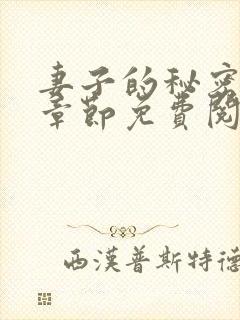 妻子的秘密
章節免費閱
西漢普斯特德